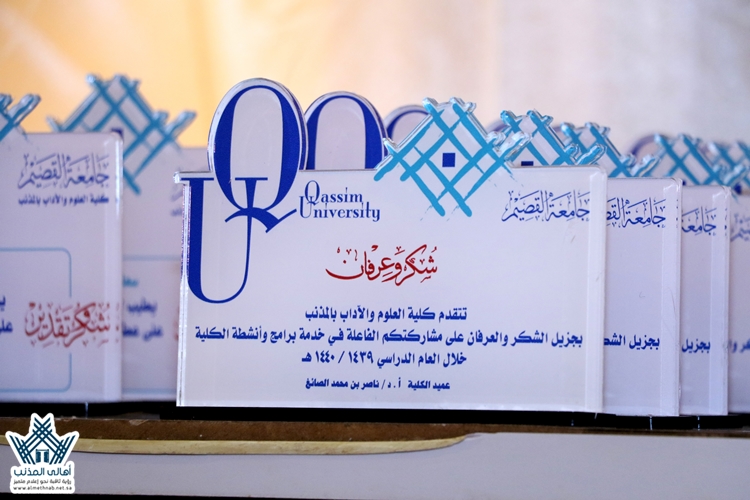 Qassim
University
جامعة القصيم
شكر وعرفان
تتقدم كلية العلوم والآداب بالمذنب
بجزيل الشكر والعرفان على مشاركتكم الفاعلة في خدمة برامج وأنشطة الكلية
خلال العام الدراسي ١٤٣٩ / ١٤٤٠ هـ
عميد الكلية أ.د/ ناصر بن محمد الصائغ
جامعة القصيم
كلية العلوم والآداب بالمذنب
شكر وتقدير
جامعة القصيم
بجزيل الشكر
جامعة القصيم
بجزيل الش
أهالي المذنب
رؤية ثاقبة نحو إعلام متميز
www.almethnab.net.sa